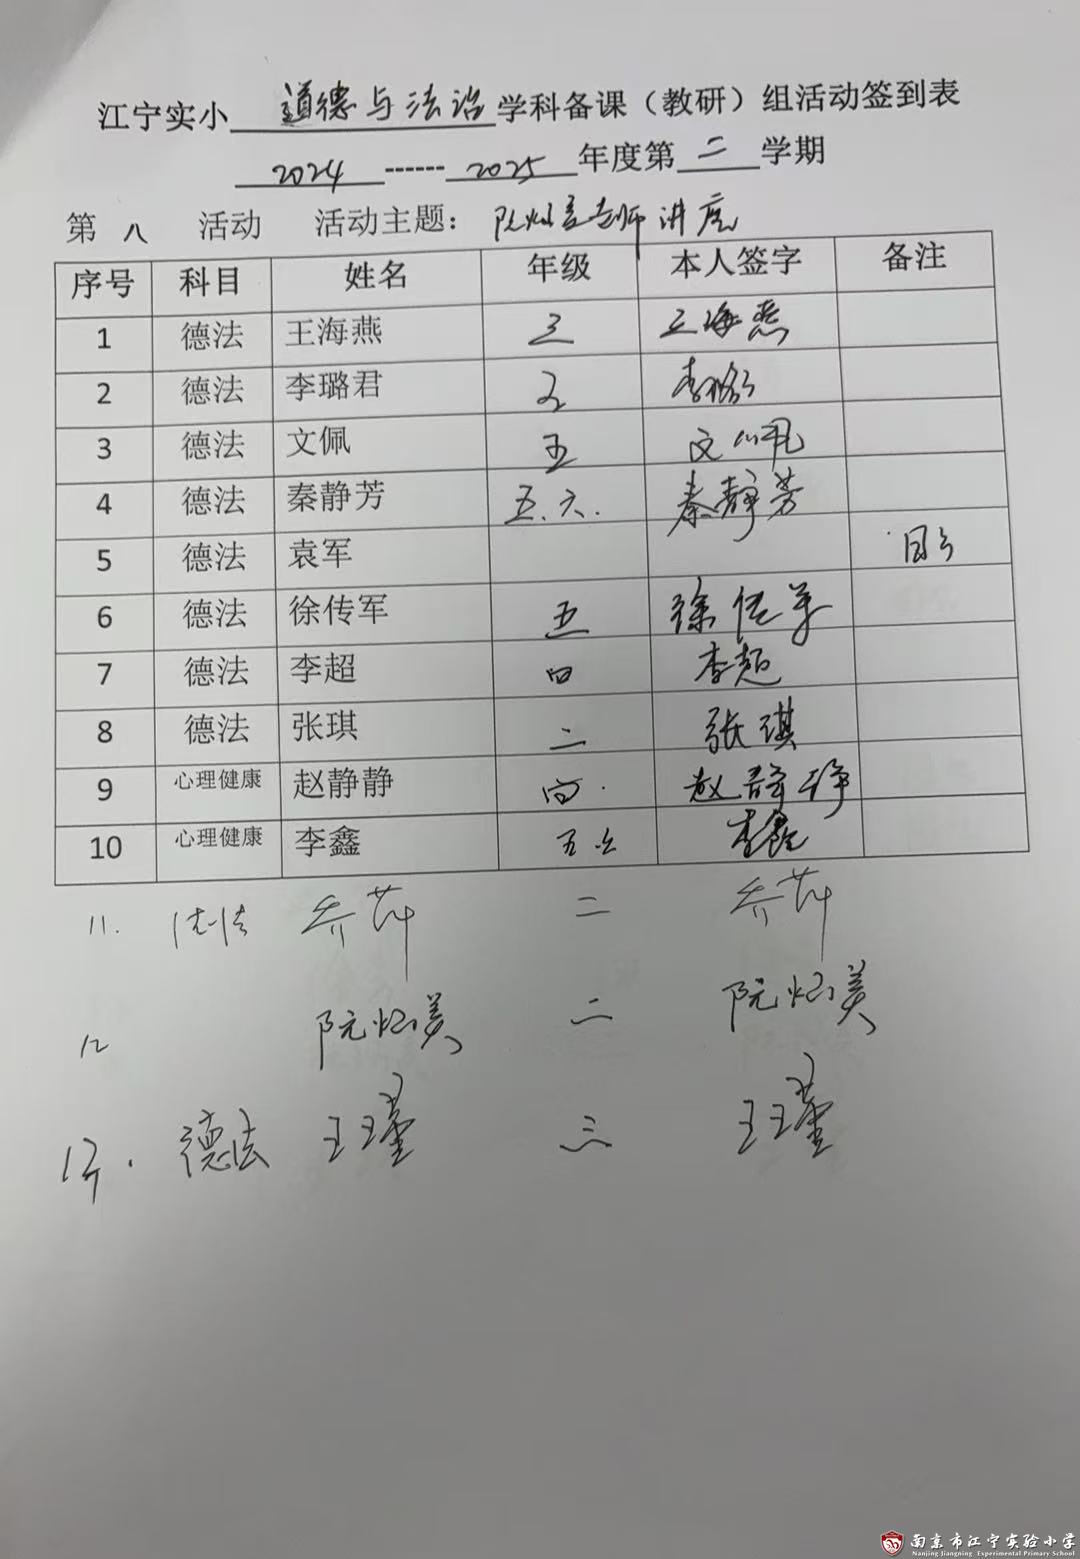 江宁实小 道德与法治 学科备课（教研）组活动签到表
2024 ------ 2025 年度第 二 学期
第 八 活动 活动主题： 阮灿美老师讲座
序号 科目 姓名 年级 本人签字 备注
1 德法 王海燕 三 王海燕
2 德法 李璐君 李璐君
3 德法 文佩 五 文佩
4 德法 秦静芳 五、六. 秦静芳
5 德法 袁军
6 德法 徐传军 五 徐传军
7 德法 李超 四 李超
8 德法 张琪 二 张琪
9 心理健康 赵静静 四. 赵静静
10 心理健康 李鑫 五 李鑫
11. 乔萍 二 乔萍
12 阮灿美 二 阮灿美
13. 德法 王瑾 三 王瑾
南京市江宁实验小学
Nanjing Jiangning Experimental Primary School